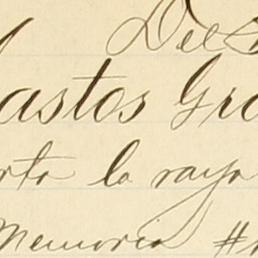 Del
astos Gra
rta la raya
Memoria #